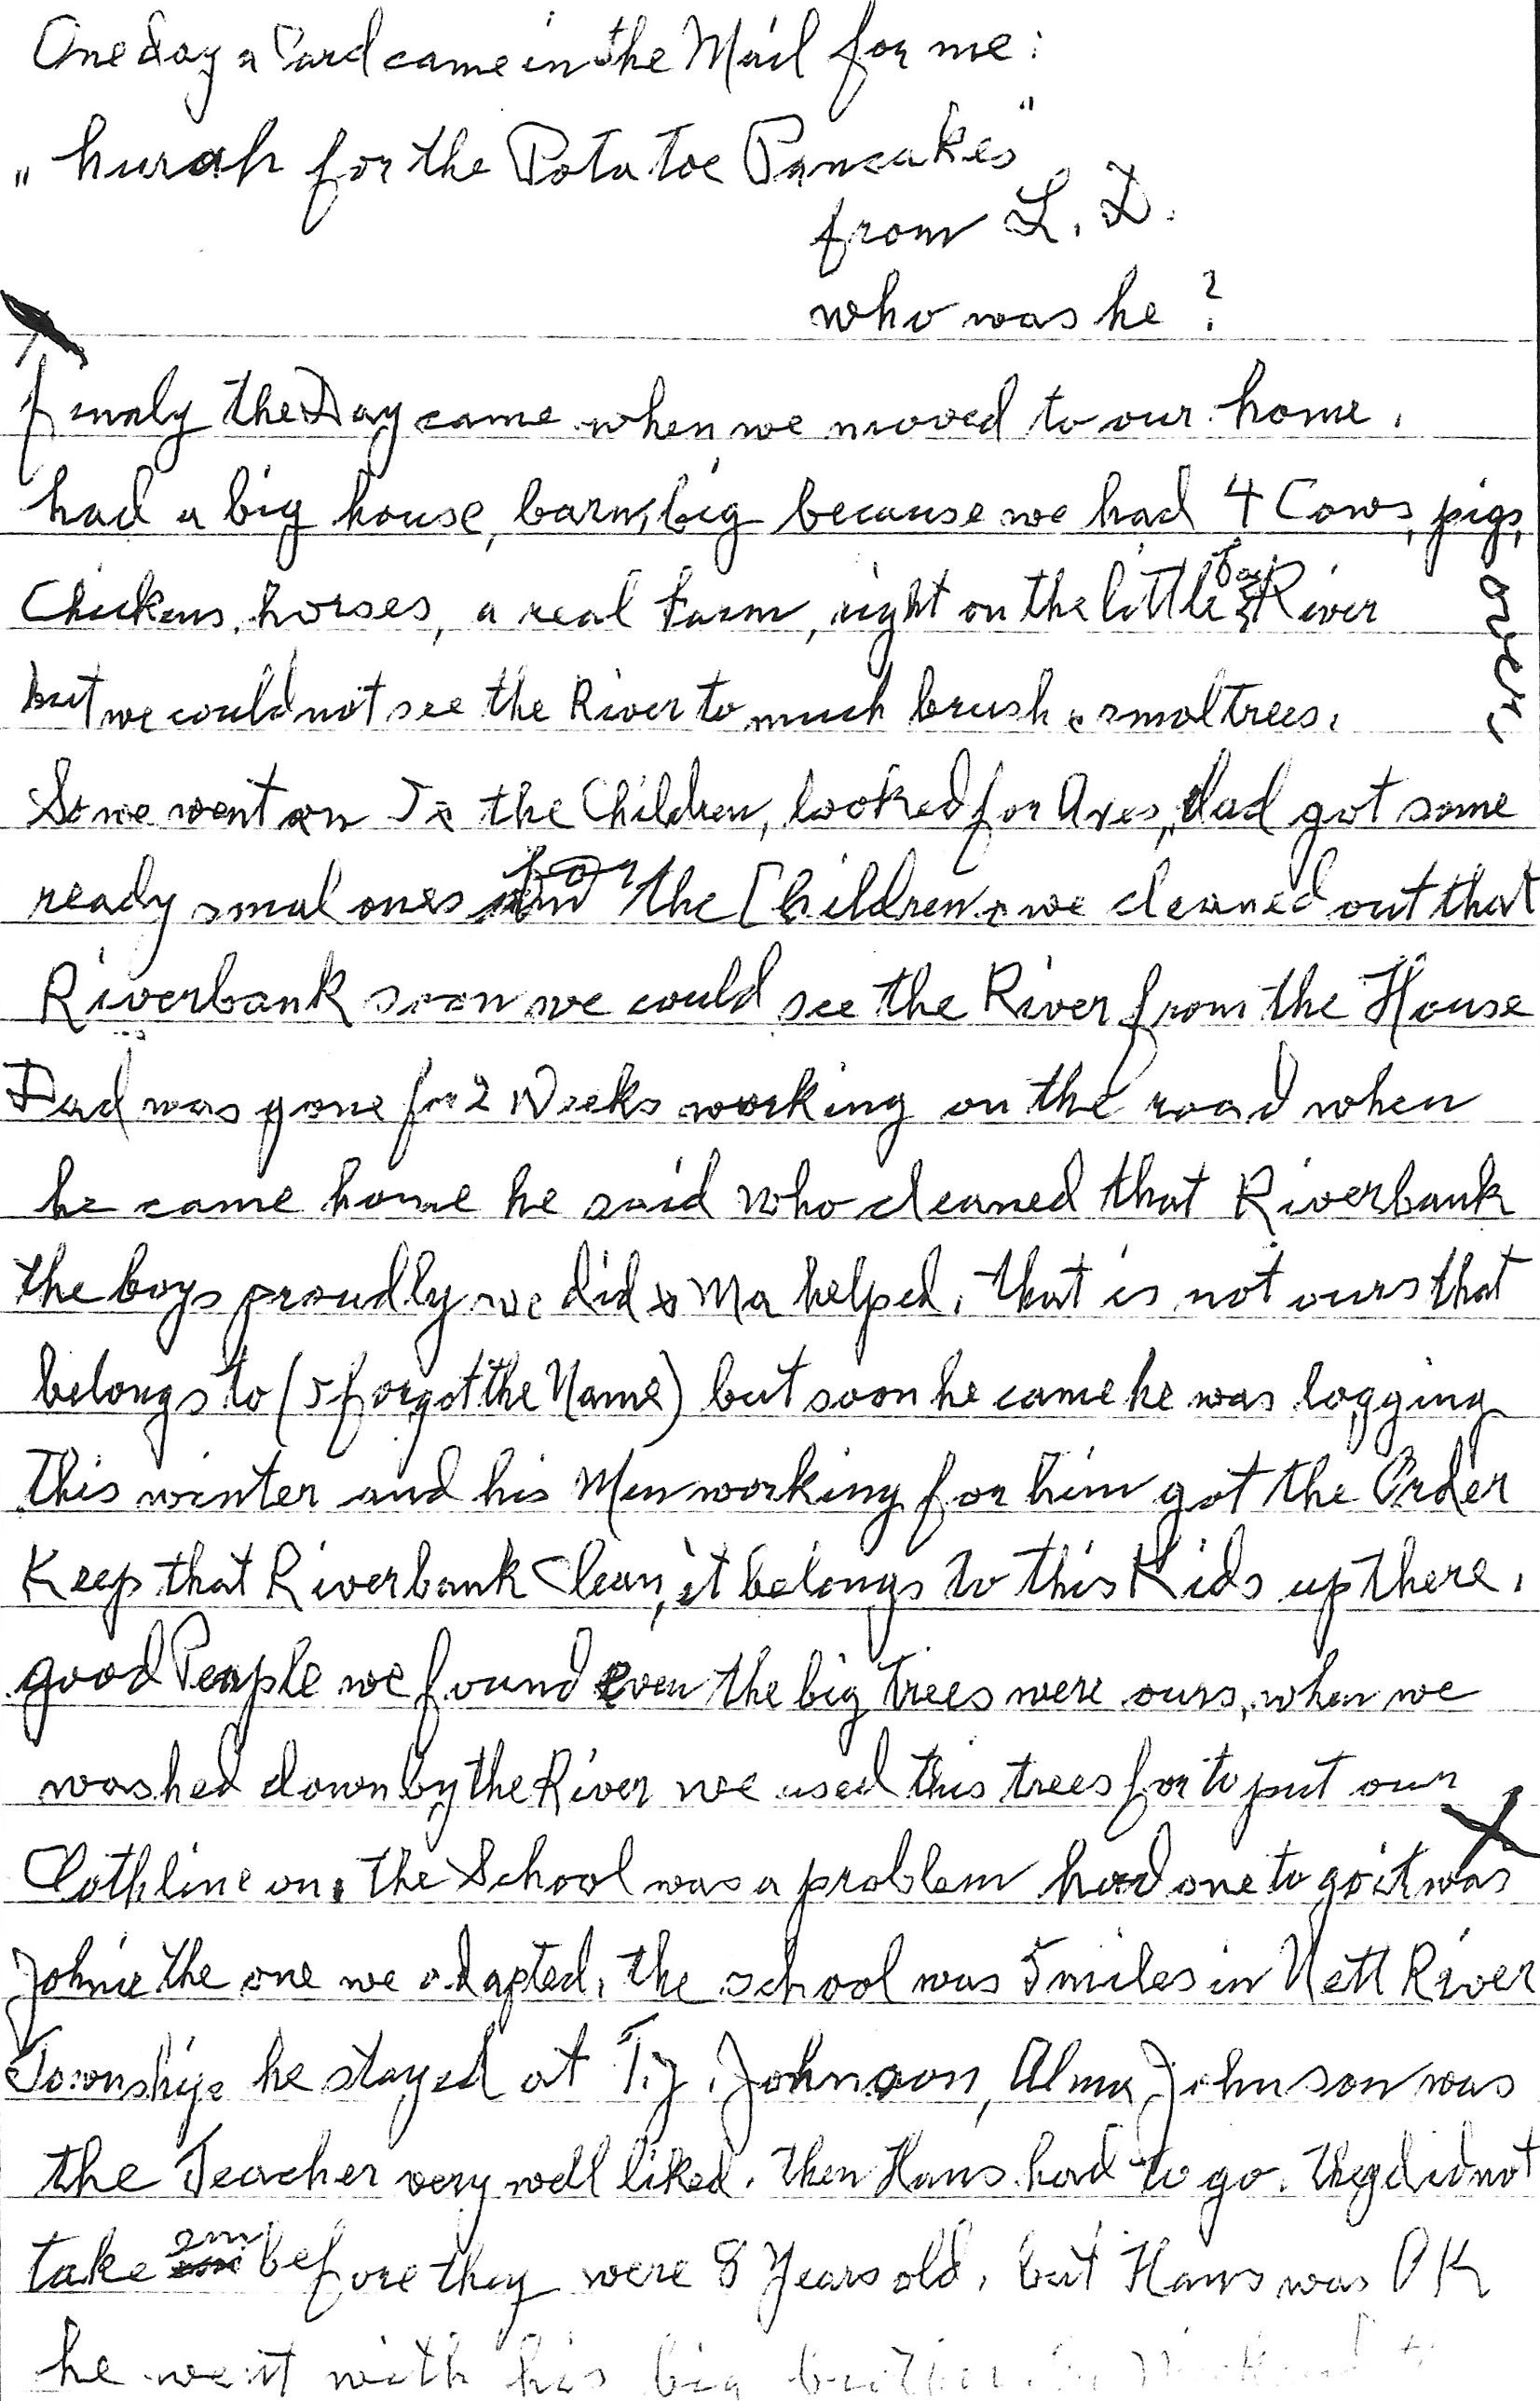 One day a Card came in the Mail for me:
„hurah for the Potatoe Pancakes"
from L. D.
who was he?
finaly the Day came when we moved to our home.
had a big house, barn, big because we had 4 Cows, pigs,
Chickens, horses, a real Farm, right on the little River
but we could not see the River to much brush & smal trees.
over
So we went on I & the Children, looked for Axes, dad got some
ready smal ones for the Children & we cleaned out that
Riverbank soon we could see the River from the House
Dad was gone for 2 Weeks working on the road when
he came home he said who cleaned that Riverbank
the boys proudly we did & Ma helped. that is not ours that
belongs to (I forgot the Name) but soon he came he was logging
This winter and his Men working for him got the Order
Keep that Riverbank Clean, it belongs to this Kids up there.
good People we found even the big trees were ours, when we
washed down by the River we used this trees for to put our
Clothline on. the School was a problem had one to go it was
Johnie the one we adapted, the school was 5 miles in Nett River
Township he stayed at T.J. Johnson, Alma Johnson was
the Teacher very well liked. then Hans had to go. they did not
take em before they were 8 Years old, but Hans was OK
he went with his big brother.